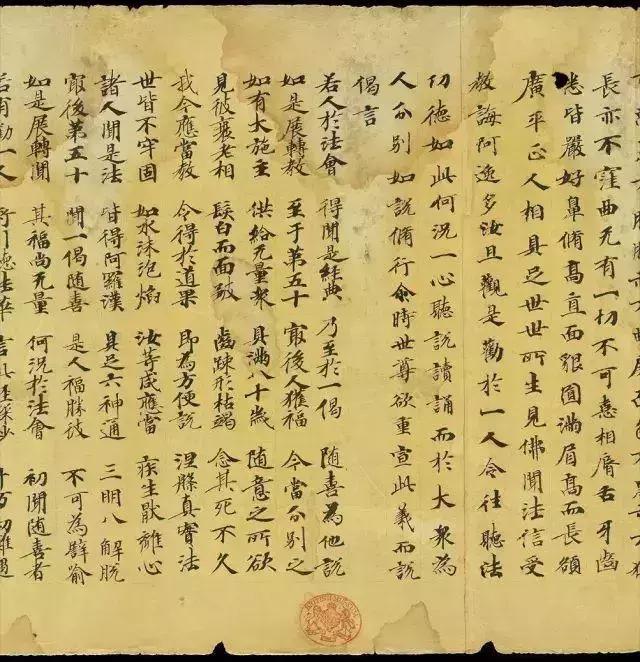 長亦不窪曲无有一切不可惪相脣舌牙齒
悉皆嚴好鼻脩髙直面貌圓滿眉髙而長頟
廣平正人相具足世世所生見佛聞法信受
教誨阿逸多汝且觀是勸於一人令往聽法
功德如此何況一心聽說讀誦而於大衆為
人分別如說脩行尒時世尊欲重宣此義而說
偈言
若人於法會 得聞是經典 乃至於一偈 随喜為他說
如是展轉教 至于第五十 㝡後人獲福 今當分別之
如有大施主 供給无量衆 具滿八十歲 随意之所欲
見彼衰老相 髮白而面皺 齒踈形枯竭 念其死不久
我今應當教 令得於道果 即為方便說 涅槃真實法
世皆不牢固 如水沫泡焰 汝等咸應當 疾生猒離心
諸人聞是法 皆得阿羅漢 具足六神通 三明八解脫
㝡後第五十 聞一偈随喜 是人福勝彼 不可為譬喻
如是展轉聞 其福尚无量 何況於法會 初聞随喜者
若有勸一人